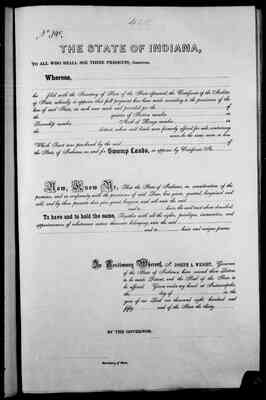 THE STATE OF INDIANA,
TO ALL WHO SHALL SEE THESE PRESENTS, GREETING:
Whereas,
ha filed with the Secretary of State of the State aforesaid, the Certificate of the Auditor
of State, whereby it appears that full payment has been made according to the provisions of the
law of said State, in such case made and provided for the of
of the quarter of Section number in
Township number of Range number in
the District, where said lands were formerly offered for sale, containing
acres be the same more or less,
Which Tract was purchased by the said of
the State of Indiana as and for Swamp Lands, as appears by Certificate No.
Now, Know Ye, That the State of Indiana, in consideration of the
premises, and in conformity with the provisions of said Law, has given, granted, bargained and
sold, and by these presents does give, grant, bargain, and sell unto the said
and to have the said tract above described,
To have and to hold the same, Together with all the rights, privileges, immunities, and
appurtenances of whatsoever nature thereunto belonging unto the said
and to heirs and assigns forever.
In Testimony Whereof, I, JOSEPH A. WRIGHT, Governor
of the State of Indiana, have caused these Letters
to be made Patent, and the Seal of the State to
be affixed. Given under my hand at Indianapolis,
the day of in the
year of our Lord one thousand eight hundred and
fifty and of the State the thirty
BY THE GOVERNOR:
Secretary of State.